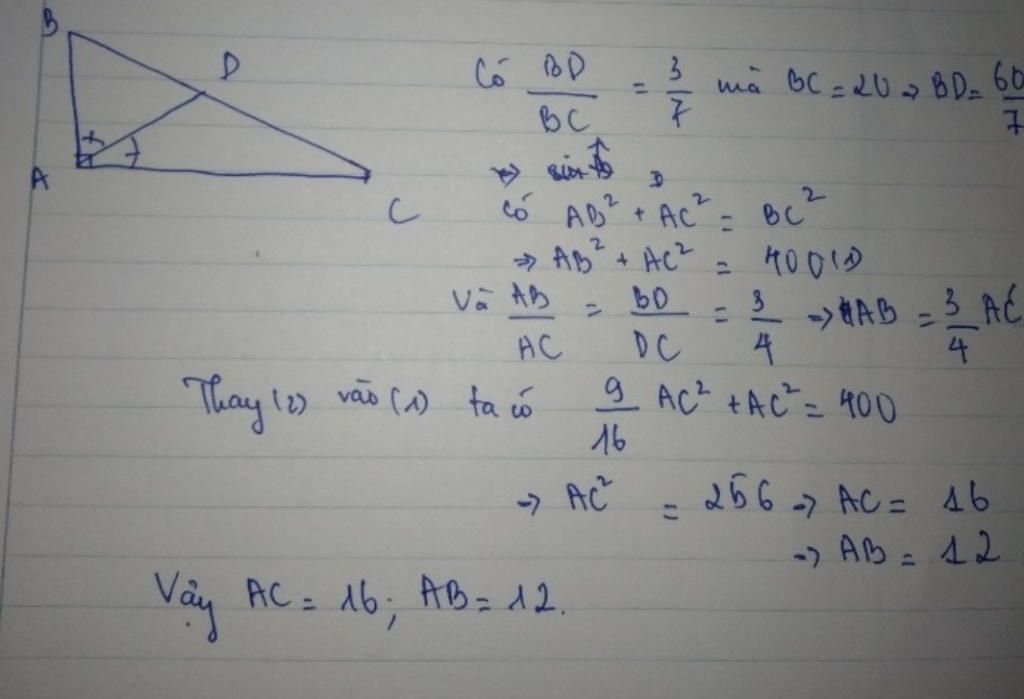 B
D
A
C
Có BD/BC = 3/7 mà BC = 20 → BD = 60/7
Có AB² + AC² = BC²
→ AB² + AC² = 400 (1)
Và AB/AC = BD/DC = 3/4 → AB = 3/4 AC
Thay (2) vào (1) ta có 9/16 AC² + AC² = 400
→ AC² = 256 → AC = 16
→ AB = 12
Vậy AC = 16; AB = 12.